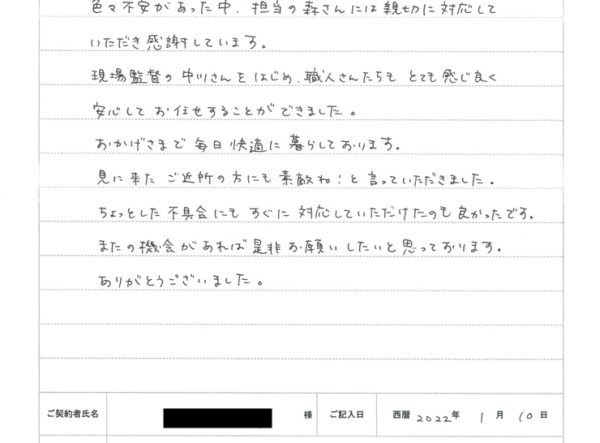 色々不安があった中、担当の森さんには親切に対応して
いただき感謝しています。
現場監督の中川さんをはじめ、職人さんたちもとても感じ良く
安心してお任せすることができました。
おかげさまで毎日快適に暮らしております。
見に来たご近所の方にも素敵ね!と言っていただきました。
ちょっとした不具合にもすぐに対応していただけたのも良かったです。
またの機会があれば是非お願いしたいと思っております。
ありがとうございました。
ご契約者氏名 様 ご記入日 西暦 2022年 1月 10日